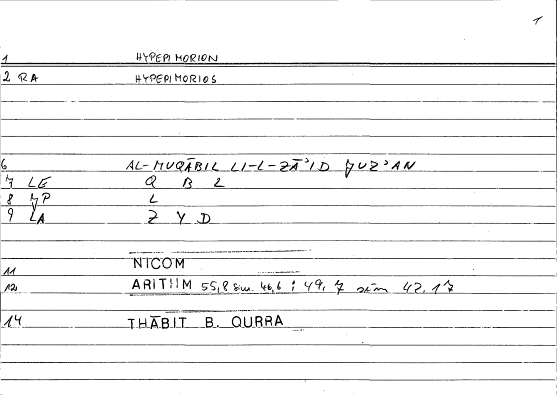 1
1 HYPEPIMORION
2 RA HYPEPIMORIOS
6 AL-MUQĀBIL LI-L-ZĀʾID ǦUZʾAN
7 LE Q B L
8 ǦP L
9 LA Z Y D
11 NICOM
12 ARITHM 55,8 sim. 46,6 ; 49,7 sim 42,17
14 THĀBIT B. QURRA